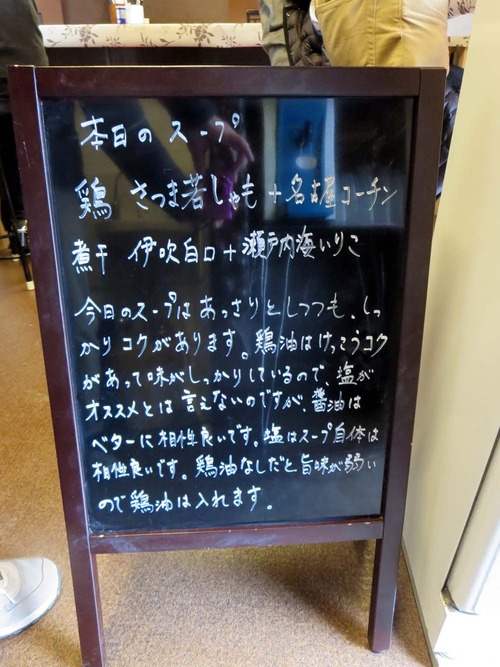 本日のスープ
鶏 さつま若しゃも+名古屋コーチン
煮干 伊吹白口+瀬戸内海いりこ
今日のスープはあっさりとしつつも、しっ
かりコクがあります。鶏油はけっこうコク
があって味がしっかりしているので、塩が
オススメとは言えないのですが、醤油は
ベターに相性良いです。塩はスープ自体は
相性良いです。鶏油なしだと旨味が弱い
ので鶏油は入れます。